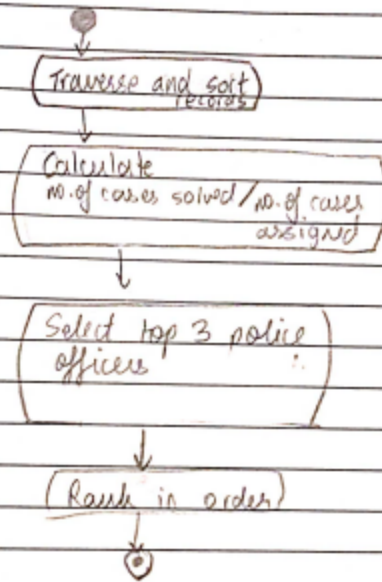 Traverse and sort
records
Calculate
no. of cases solved / no. of cases
assigned
Select top 3 police
officers
Rank in order